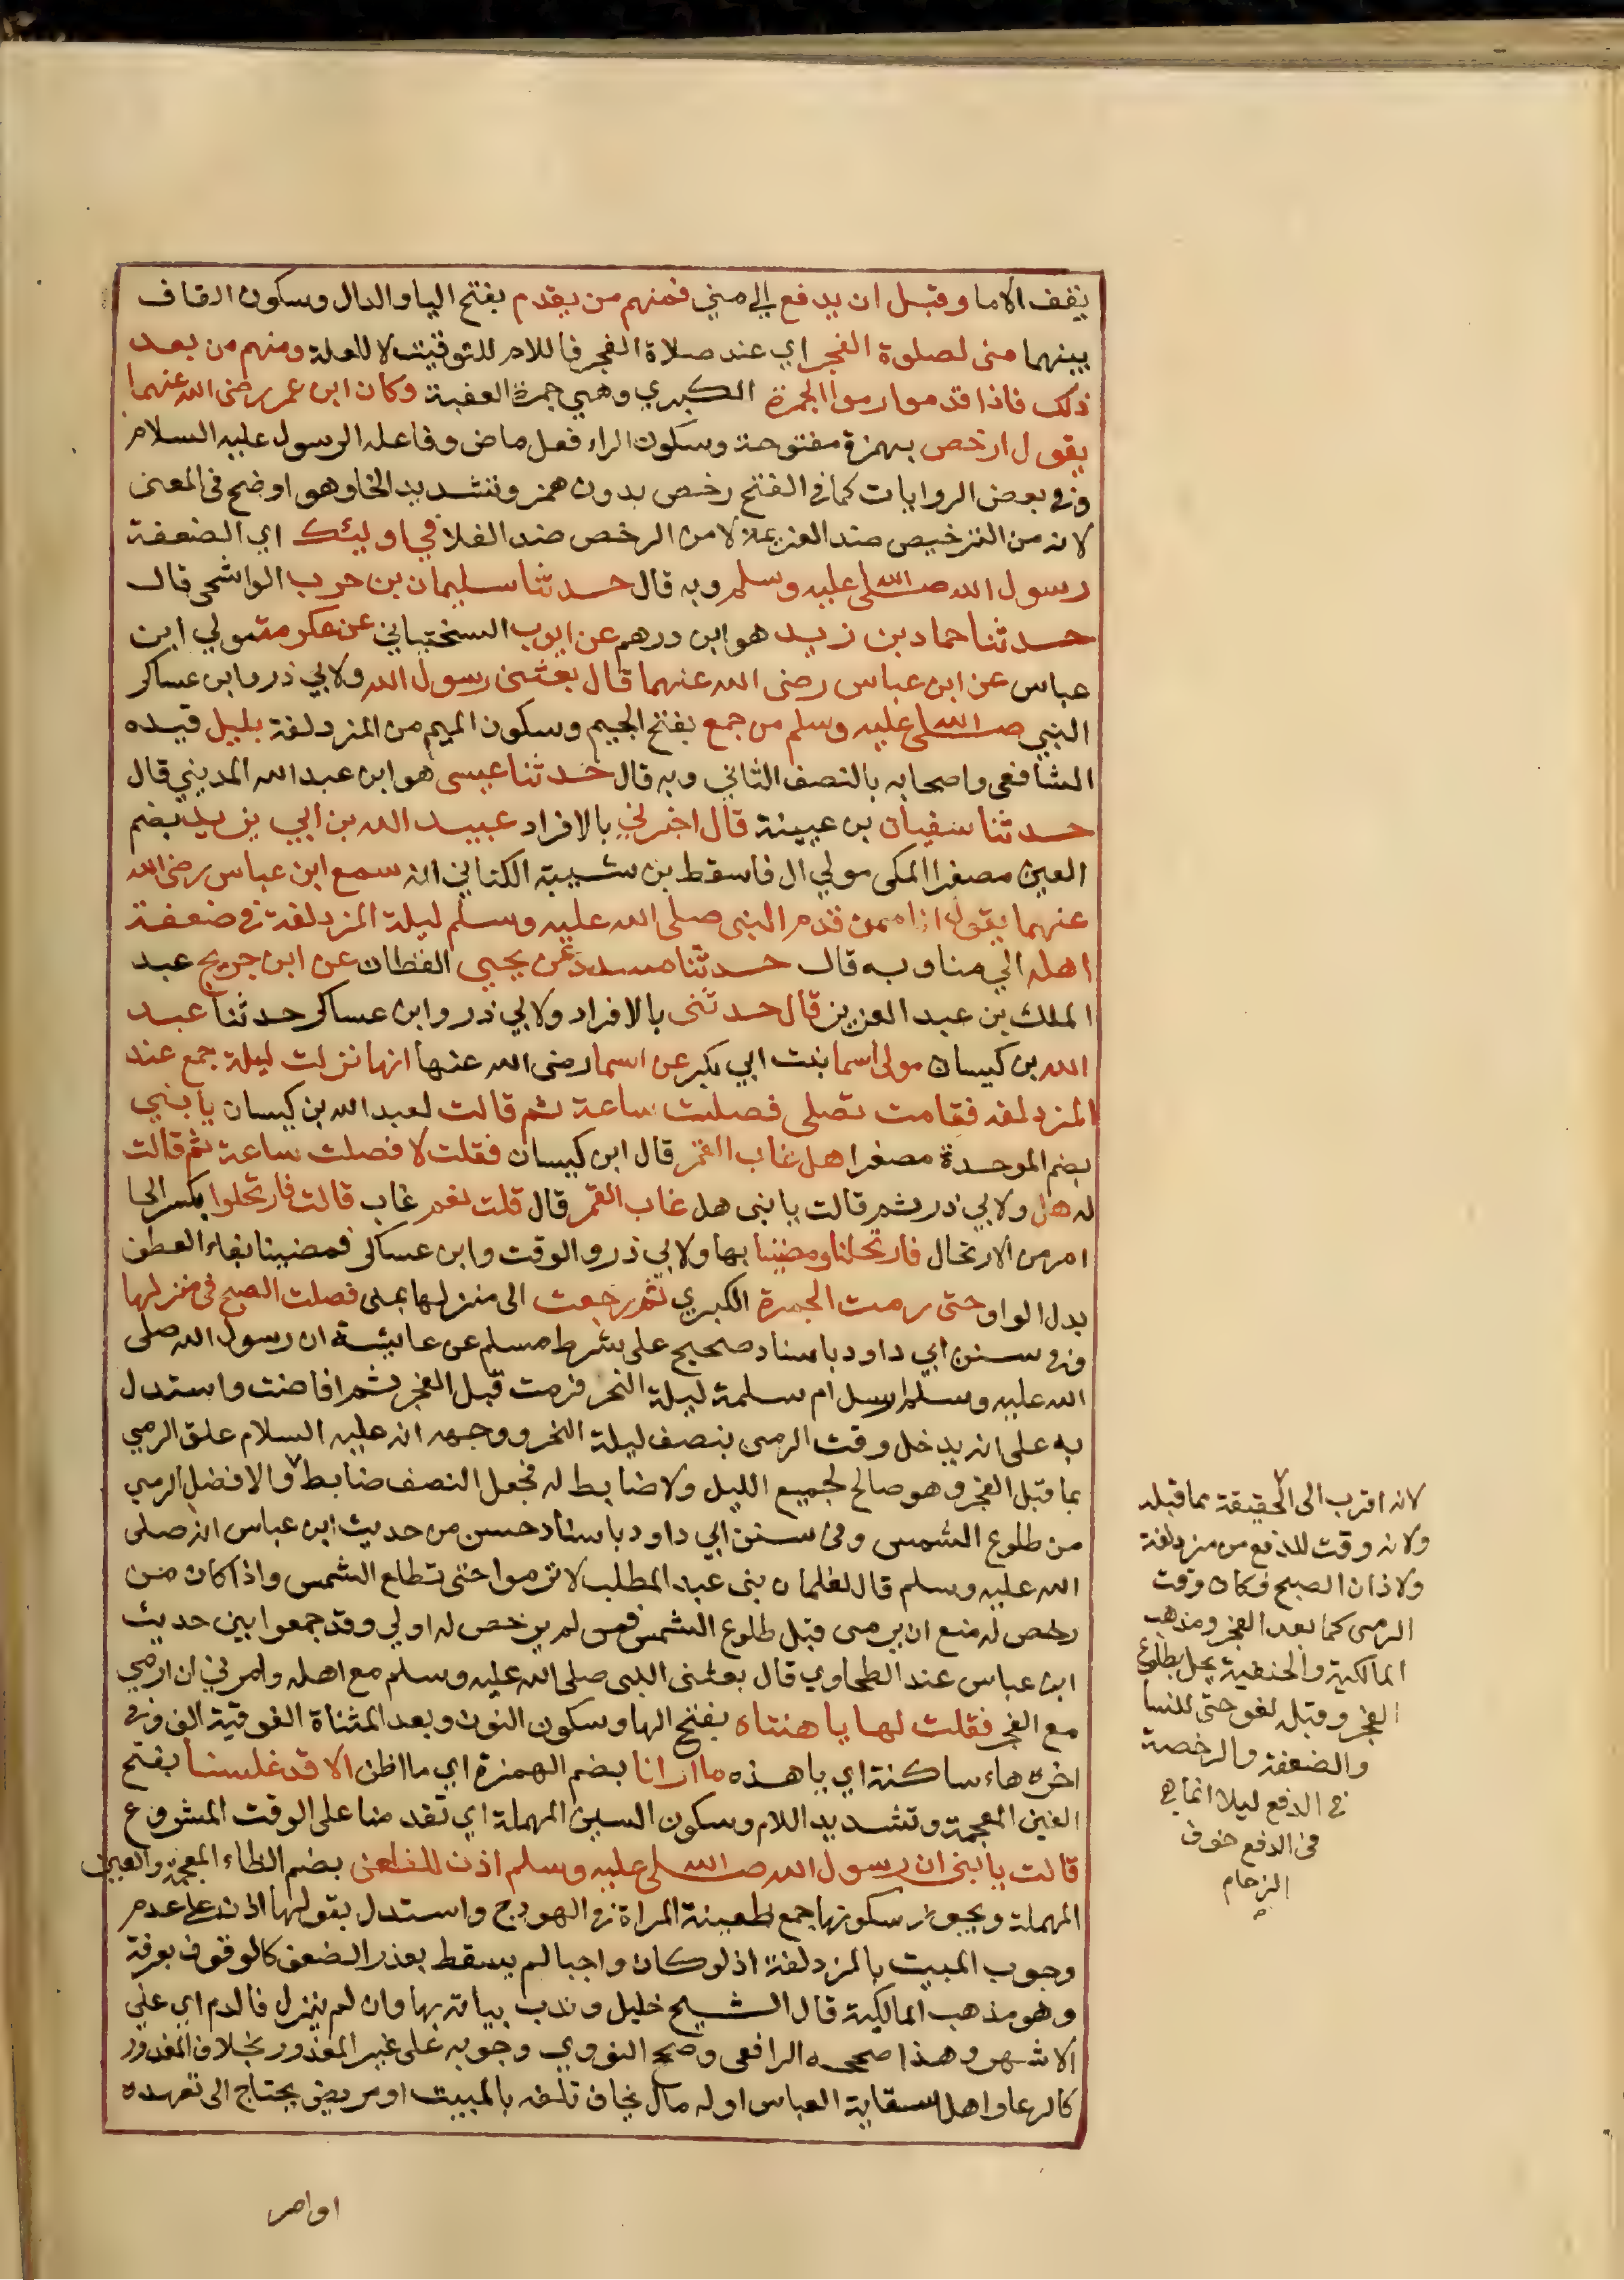 يقف الاما وقبل ان يدفع الي مني فمنهم من يقدم بفتح اليا والدال وسكون القاف
بينهما منى لصلوة الفجر اي عند صلاة الفجر فاللام للتوقيت لا للعلة ومنهم من بعد
ذلك فاذا قدموا رموا الجمرة الكبري وهي جمرة العقبة وكان ابن عمر رضى الله عنهما
يقول ارخص بهمزة مفتوحة وسكون الراء فعل ماض وفاعله الرسول عليه السلام
وفي بعض الروايات كما في الفتح رخص بدون همز وتشديد الخا وهو اوضح في المعنى
لانه من الترخيص ضد العزيمة لا من الرخص ضد الغلا في اوليئك اي الضعفة
رسول الله صلى الله عليه وسلم وبه قال حدثنا سليمان بن حرب الواشحي قال
حدثنا حماد بن زيد هو ابن درهم عن ايوب السختياني عن عكرمة مولي ابن
عباس عن ابن عباس رضى الله عنهما قال بعثنى رسول الله ولابي ذر وابن عساكر
النبي صلى الله عليه وسلم من جمع بفتح الجيم وسكون الميم من المزدلفة بليل قيده
الشافعى واصحابه بالنصف الثاني وبه قال حدثنا عيسى هو ابن عبد الله المديني قال
حدثنا سفيان بن عيينة قال اخبرني بالافراد عبيد الله بن ابي يزيد بضم
العين مصغرا المكى مولي ال فاسقط بن شيبة الكناني انه سمع ابن عباس رضى الله
عنهما يقول انا ممن قدم النبى صلى الله عليه وسلم ليلة المزدلفة في ضعفة
اهله الي منا وبه قال حدثنا مسدد عن يحيي القطان عن ابن جريج عبد
الملك بن عبد العزيز قال حدثنى بالافراد ولابي ذر وابن عساكر حدثنا عبد
الله بن كيسان مولى اسما بنت ابي بكر عن اسما رضى الله عنها انها نزلت ليلة جمع عند
المزدلفه فقامت تصلى فصلت ساعة ثم قالت لعبد الله بن كيسان يا بني
بضم الموحدة مصغرا هل غاب القمر قال ابن كيسان فقلت لا فصلت ساعة ثم قالت
له هل ولابي ذر ثم قالت يا بنى هل غاب القمر قال قلت نعم غاب قالت فارتحلوا بكسر الحا
امر من الارتحال فارتحلنا ومضينا بها ولابي ذر والوقت وابن عساكر فمضينا بفاء العطف
بدل الواو حتى رمت الجمرة الكبري ثم رجعت الى منزلها بمنى فصلت الصبح فى منزلها
وفي سنن ابي داود باسناد صحيح على شرط مسلم عن عايشة ان رسول الله صلى
الله عليه وسلم ارسل ام سلمة ليلة النحر فرمت قبل الفجر ثم افاضت واستدل
به على انه يدخل وقت الرمى بنصف ليلة النحر ووجهه انه عليه السلام علق الرمي
بما قبل الفجر وهو صالح لجميع الليل ولا ضابط له فجعل النصف ضابطا والافضل الرمي
من طلوع الشمس وفى سنن ابي داود باسناد حسن من حديث ابن عباس انه صلى
الله عليه وسلم قال لغلمان بنى عبد المطلب لا ترموا حتى تطلع الشمس واذا كان من
رخص له منع ان يرمى قبل طلوع الشمس فمن لم يرخص له اولي وقد جمعوا بين حديث
ابن عباس عند الطحاوي قال بعثنى النبى صلى الله عليه وسلم مع اهله وامرني ان ارمي
مع الفجر فقلت لها يا هنتاه بفتح الها وسكون النون وبعد المثناة الفوقية الف وفي
اخره هاء ساكنة اي يا هذه ما ارانا بضم الهمزة اي ما اظن الا قد غلسنا بفتح
الغين المعجمة وتشديد اللام وسكون السين المهملة اي تقدمنا على الوقت المشروع
قالت يا بنى ان رسول الله صلى الله عليه وسلم اذن للظعن بضم الظاء المعجمة والعين
المهملة ويجوز سكونها جمع ظعينة المراة في الهودج واستدل بقولها اذن على عدم
وجوب المبيت بالمزدلفة اذ لو كان واجبا لم يسقط بعذر الضعف كالوقوف بعرفة
وهو مذهب المالكية قال الشيخ خليل وندب بياته بها وان لم ينزل فالدم اي علي
الاشهر وهذا صححه الرافعى وصحح النووي وجوبه على غير المعذور بخلاف المعذور
كالرعا واهل سقاية العباس او له مال يخاف تلفه بالمبيت او مريض يحتاج الى تعهده
او امر
لانه اقرب الى الحقيقة مما قبله
ولانه وقت للدفع من مزدلفة
ولاذان الصبح فكان وقت
الرمى كما بعد الفجر ومذهب
المالكية والحنفية يحل بطلوع
الفجر وقبله لغو حتى للنسا
والضعفة والرخصة
في الدفع ليلا انما هي
فى الدفع خوف
الزحام